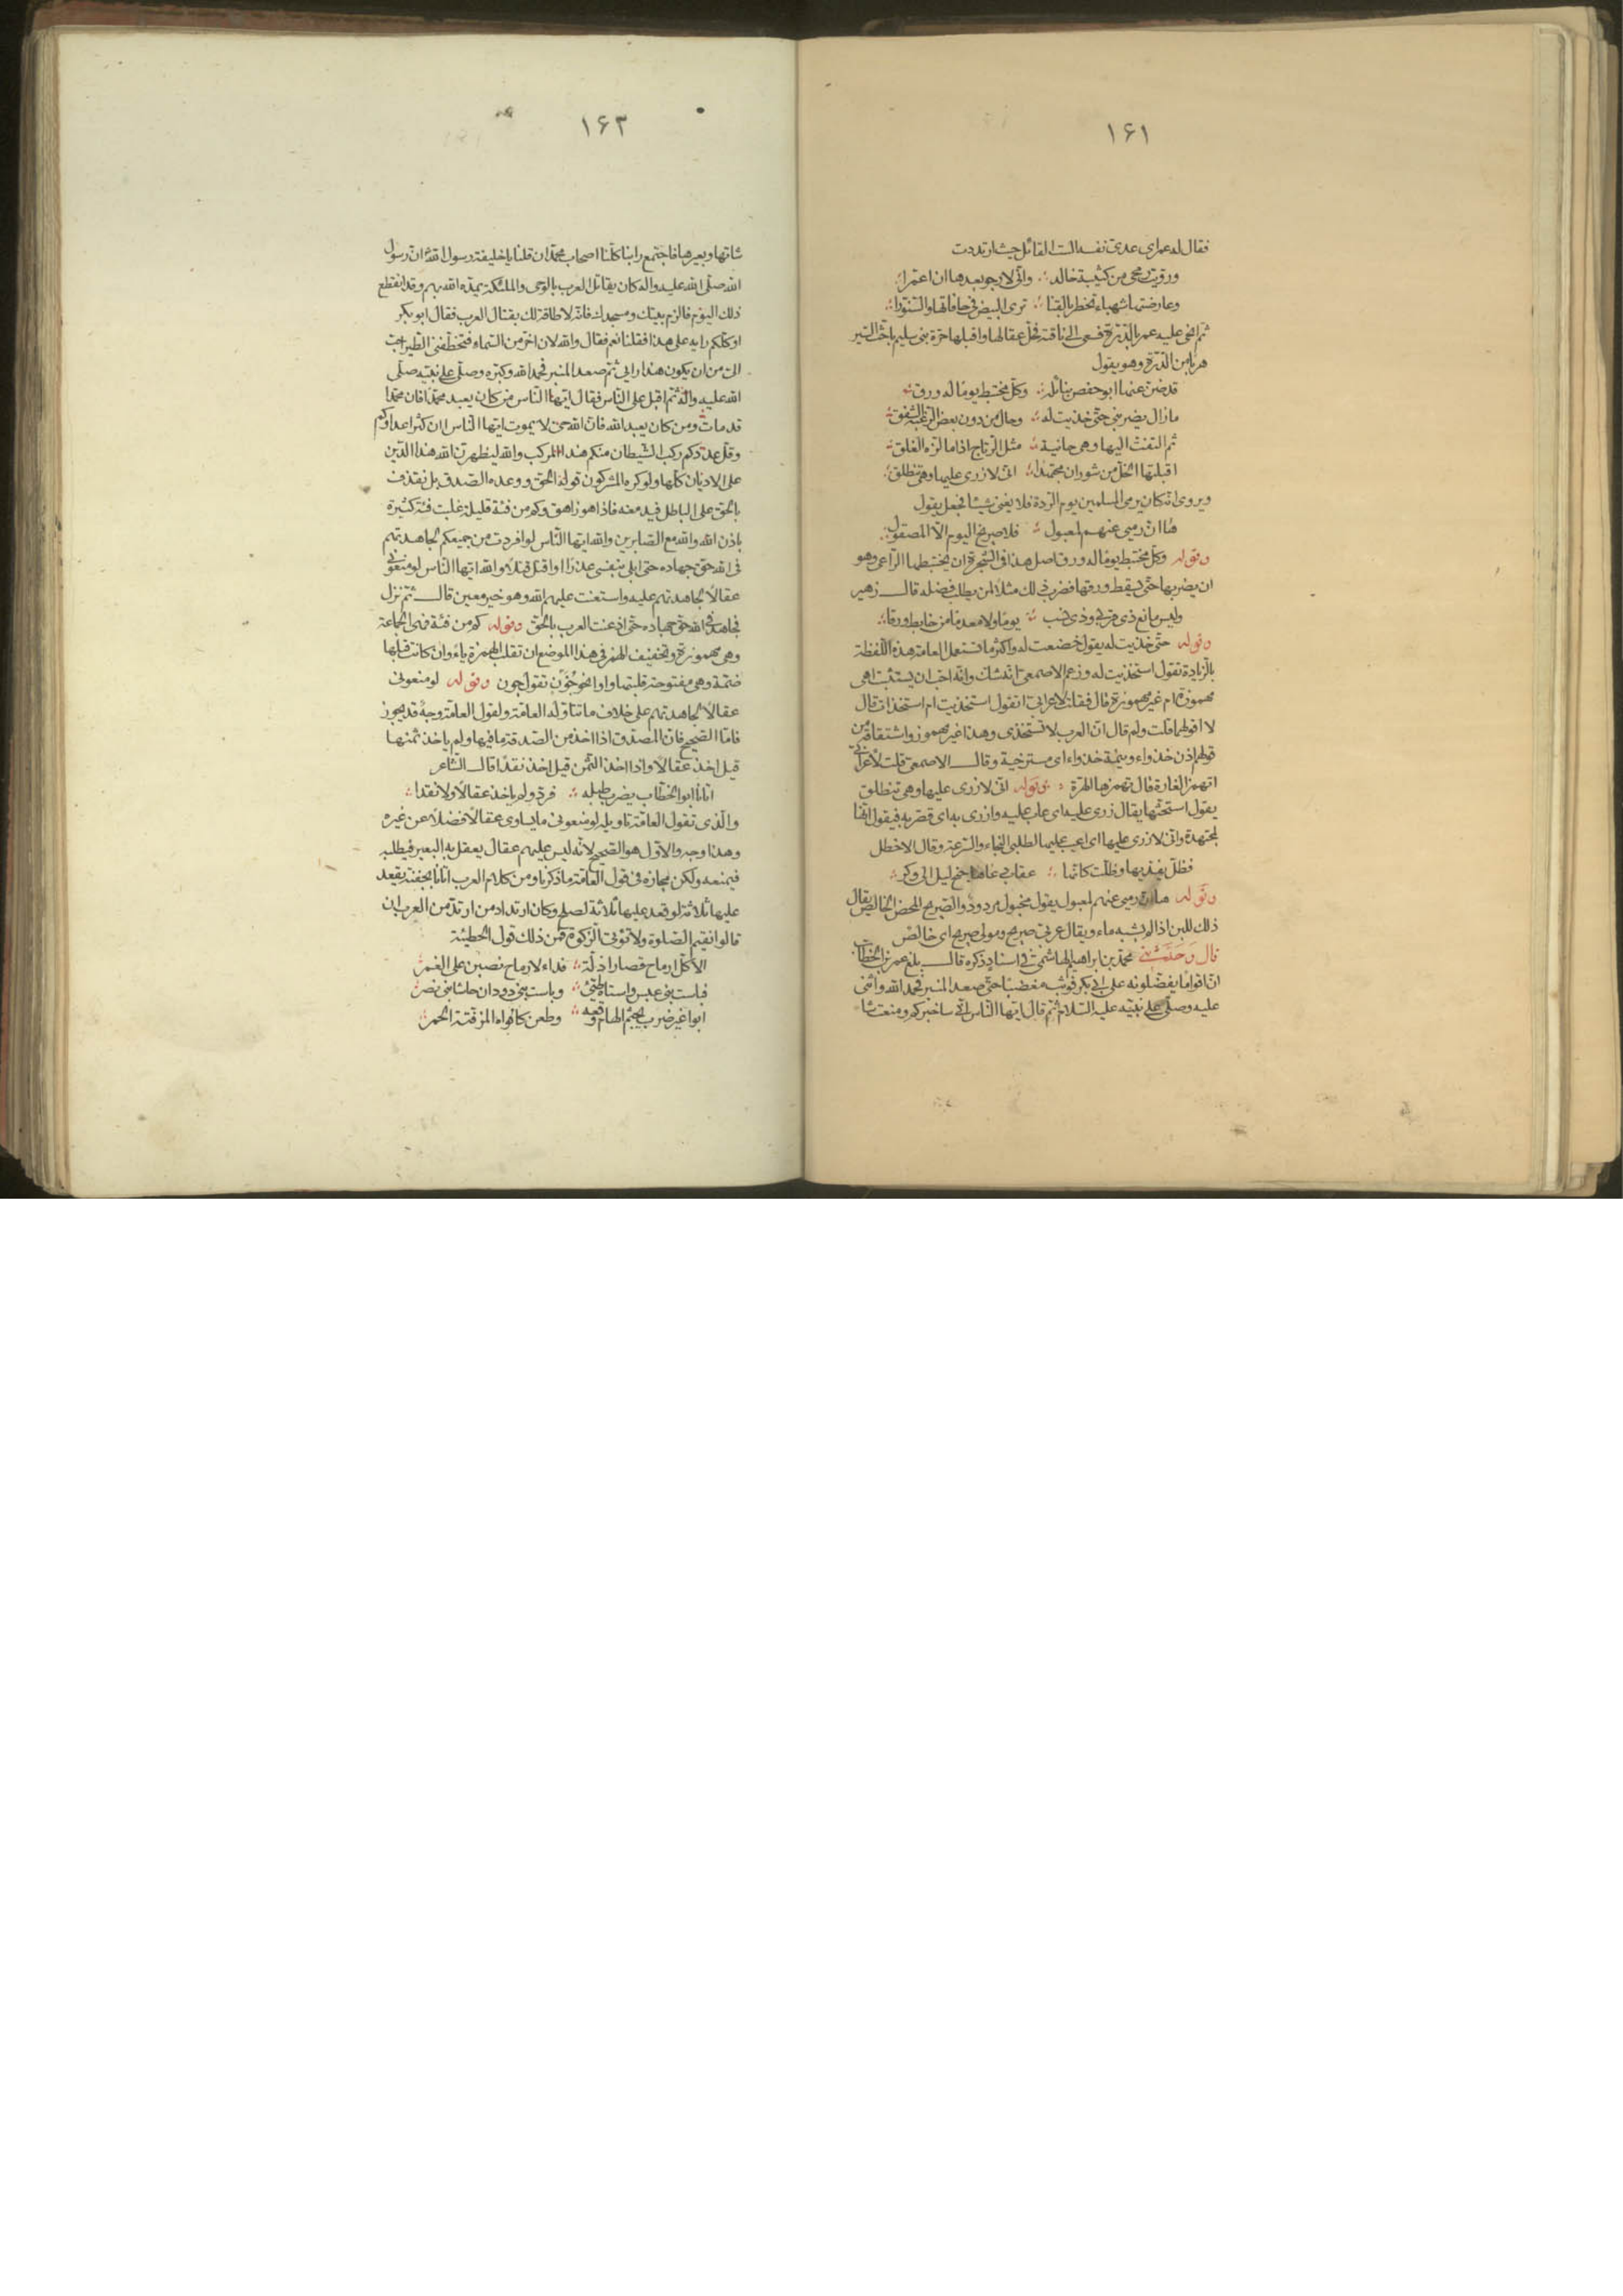 ١۶١
فقال له عمر اى عدىّ نفسه الست القائل حيث ارتددت
ورويت رمحى من كتيبة خالد وانّى لارجو بعدها ان اعمّرا
وعارضتها شهباء تخطر بالقنا ترى البيض فى حافاتها والسّنوّرا
ثم انحى عليه عمر بالدّرّة فسعى الى ناقته فحلّ عقالها واقبلها حرّة بنى سليم باحثّ السّير
هربا من الدّرّة وهو يقول
قد ضنّ عنها ابو حفص بنائله وكلّ مختبط يوما له ورق
مازال يضربنى حتّى خذيت له وحال من دون بعض الرّغبة الشّفق
ثم التفتّ اليها وهى حانية مثل الرّتاج اذا ما لزّه الغلق
اقبلتها الخلّ من شوران مجتهدا انّى لازرى عليها وهى تنطلق
ويروى انّه كان يرمى المسلمين يوم الرّدة فلا يغنى شيئا فجعل يقول
ها انّ رميى عنهم لمعبول فلا صريح اليوم الّا المصقول
وقوله وكل مختبط يوما له ورق اصل هذا فى الشجرة ان يختبطها الرّاعى وهو
ان يضربها حتّى يسقط ورقها فضرب ذلك مثلا لمن يطلب فضله قال زهير
وليس مانع ذى قربى وذى نسب يوما ولا معدما من خابط ورقا
وقوله حتّى خذيت له يقول خضعت له واكثر ما تستعمل العامة هذه اللّفظة
بالزّيادة تقول استخذيت له وزعم الاصمعىّ انّه شكّ وانّه احبّ ان يستثبت اهى
مهموزة ام غير مهموزة قال فقلت لاعرابىّ اتقول استخذيت ام استخذات قال
لا اقولهما قلت ولم قال انّ العرب لا تستخذى وهذا غير مهموز واشتقاقه من
قولهم اذن خذواء وينمة خذواء اى مسترخية وقال الاصمعىّ قلت لأعرابىّ
اتهمز الفارة قال تهمزها الهرّة وقوله انّى لازرى عليها وهى تنطلق
يقول استحثّها يقال زرى عليه اى عاب عليه وازرى به اى قصّر به فيقول انّها
لمجتهدة وانّى لازرى عليها اى اعيب عليها لطلبى النجاء والسّرعة وقال الاخطل
فظلّ يفدّيها وظلّت كانّها عقاب دعاها جنح ليل الى وكر
وقوله ها انّ رميى عنهم لمعبول يقول مخبول مردود والصّريح المحض الخالص يقال
ذلك للبن اذا لم يشبه ماء ويقال عربىّ صريح ومولى صريح اى خالص
قال وحدّثنى محمّد بن ابراهيم الهاشمىّ فى اسناد ذكره قال بلغ عمر بن الخطّاب
انّ اقواما يفضّلونه على ابى بكر فوثب مغضبا حتّى صعد المنبر فحمد الله واثنى
عليه وصلّى على نبيّه عليه السّلام ثم قال ايّها النّاس انّى ساخبركم ومنعت شا
١۶٣
شاتها وبعيرها فاجتمع راينا كلّنا اصحاب محمّد ان قلنا يا خليفة رسول الله انّ رسول
الله صلّى الله عليه واله كان يقاتل العرب بالوحى والملئكة يمدّه الله بهم وقد انقطع
ذلك اليوم فالزم بيتك ومسجدك فانّه لا طاقة لك بقتال العرب فقال ابو بكر
اوكلّكم رايه على هذا فقلنا نعم فقال والله لان اخرّ من السّماء فتخطّفنى الطير احبّ
الىّ من ان يكون هذا رايى ثم صعد المنبر فحمد الله وكبّره وصلّى على نبيّه صلّى
الله عليه واله ثم اقبل على النّاس فقال ايّها النّاس من كان يعبد محمّدا فان محمّدا
قد مات ومن كان يعبد الله فان الله حىّ لا يموت ايّها النّاس اان كثر اعداؤكم
وقلّ عددكم ركب الشيطان منكم هذا المركب والله ليظهرنّ الله هذا الدّين
على الاديان كلّها ولو كره المشركون قوله الحق ووعده الصّدق بل نقذف
بالحق على الباطل فيدمغه فاذا هو زاهق وكم من فئة قليلة غلبت فئة كثيرة
باذن الله والله مع الصّابرين والله ايّها النّاس لو افردت من جميعكم لجاهدتهم
فى الله حق جهاده حتى ابلى بنفسى عذرا او اقتل قتلا والله ايّها النّاس لو منعونى
عقالا لجاهدتهم عليه واستعنت عليهم الله وهو خير معين قال ثم نزل
فجاهد فى الله حق جهاده حتّى اذعنت العرب بالحق وقوله كم من فئة فهى الجماعة
وهى مهموزة وتخفيف الهمز فى هذا الموضع ان تقلب الهمزة ياء وان كانت قبلها
ضمّة وهى مفتوحة قلبتها واوا نحو جؤن تقول جون وقوله لو منعونى
عقالا لجاهدتهم على خلاف ما تتاوّله العامّة ولقول العامّة وجه قد يجوز
فامّا الصّحيح فان المصدّق اذا اخذ من الصّدقة ما فيها ولم ياخذ ثمنها
قيل اخذ عقالا واذا اخذ الثّمن قيل اخذ نقدا قال الشّاعر
اتانا ابو الخطّاب يضرب طبله فردّ ولم ياخذ عقالا ولا نقدا
والّذى تقول العامّة تاويله لو منعونى ما يساوى عقالا فضلا عن غيره
وهذا وجه والاوّل هو الصّحيح لانّه ليس عليهم عقال يعقل به البعير فيطلبه
فيمنعه ولكن مجازه فى قول العامّة ما ذكرنا ومن كلام العرب اتانا بجفنة يقعد
عليها ثلاثة لو قعد عليها ثلاثة لصلح وكان ارتداد من ارتدّ من العرب ان
قالوا نقيم الصّلوة ولا نؤتى الزّكوة فمن ذلك قول الحطيئة
الا كلّ ارماح قصار اذلّة فداء لارماح نصبن على الغمر
فباست بنى عبس واستاه طيّئ وباست بنى دودان حاشا بنى نصر
ابوا غير ضرب يجثم الهام وقعه وطعن كافواه المزفّتة الحمر